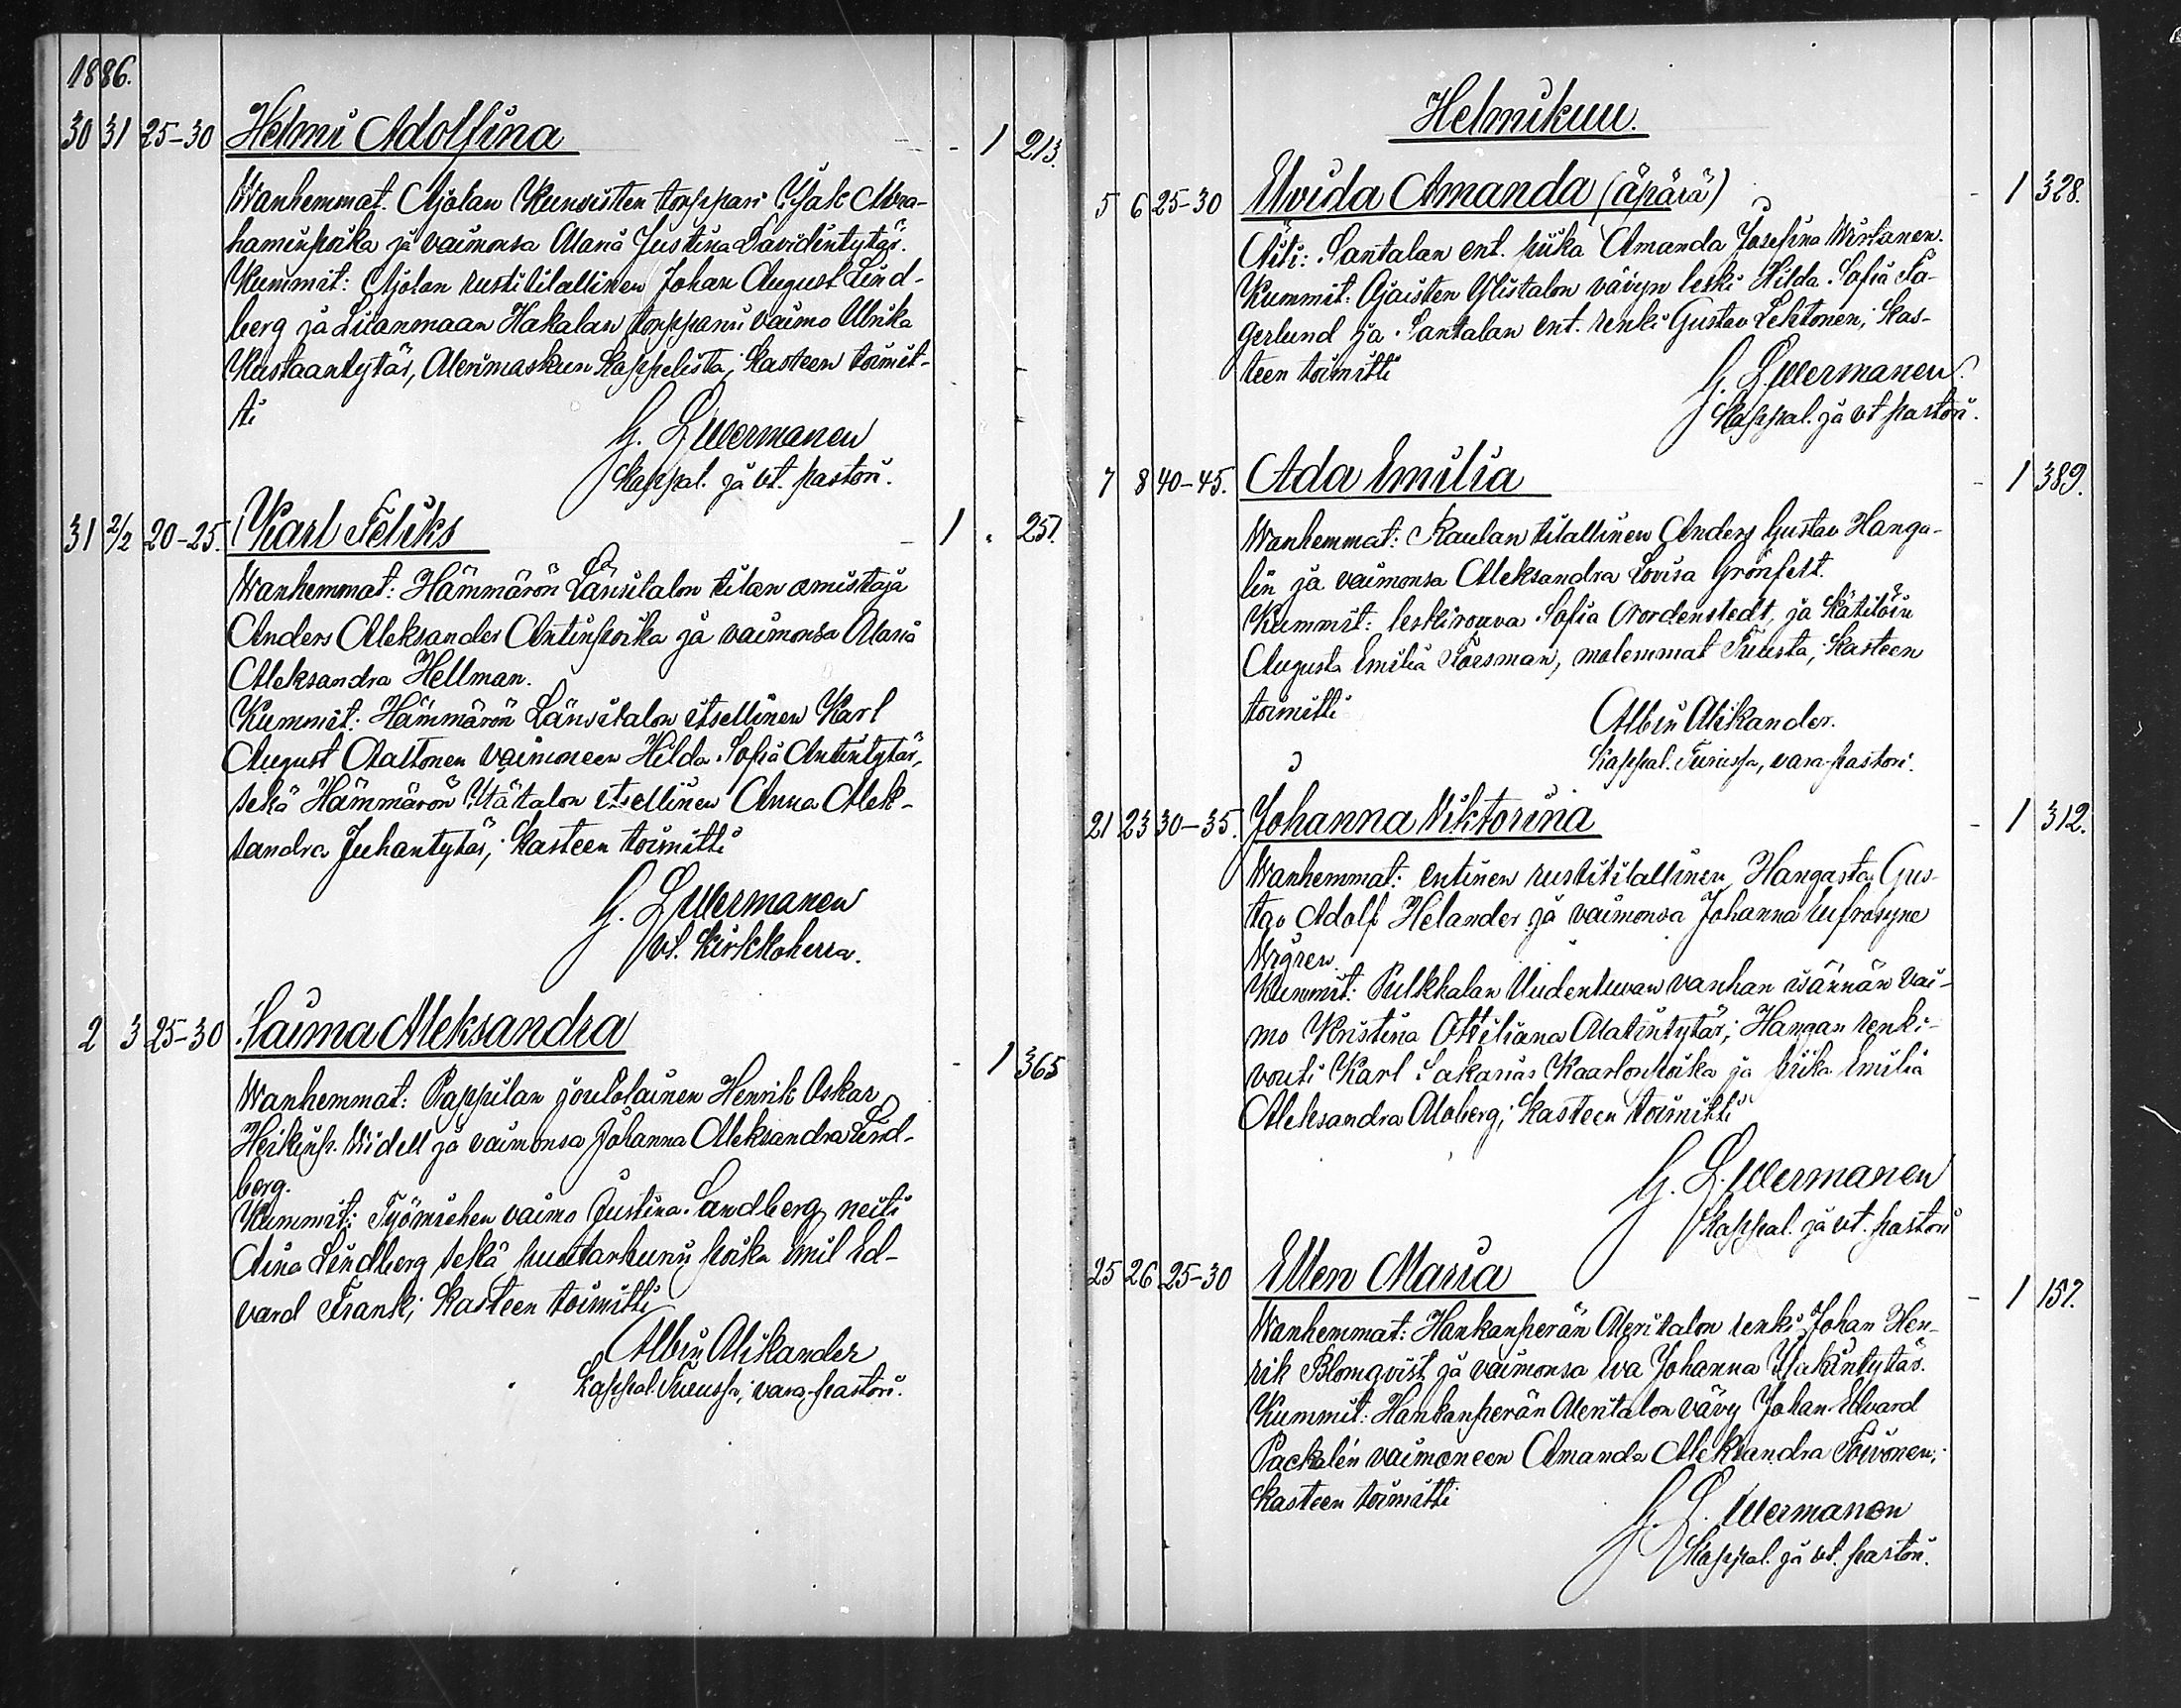 1886.
30 31 25-30 Helmi Adolfina - 1 213.
Wanhemmat. Ajolan Kunsisten torppari Isak Abra-
haminpoika ja vaimonsa Maria Justina Davidintytär.
Kummit: Ajolan rustitilallinen Johan August Lind-
berg ja Liianmaan Hakalan torpparin vaimo Ulrika
Kustaantytär, Merimaskun kappelista; kasteen toimit-
ti
G. L. Wermanen
kappal. ja vt. pastori.
31 2/2 20-25. Karl Feliks - 1 . 251.
Wanhemmat: Hämmärön Länsitalon tilan omistaja
Anders Aleksander Antinpoika ja vaimonsa Maria
Aleksandra Hellman.
Kummit: Hämmärön Länsitalon itsellinen Karl
August Aaltonen vaimoneen Hilda Sofia Antintytär,
sekä Hämmärön Itätalon itsellinen Anna Alek-
sandra Juhantytär; kasteen toimitti
G. L. Wermanen
vt. kirkkoherra.
2 3 25-30 Saima Aleksandra - 1 365
Wanhemmat: Pappilan joutolainen Henrik Oskar
Heikinp. Widell ja vaimonsa Johanna Aleksandra Lind-
berg.
Kummit: Työmiehen vaimo Justina Sandberg, neiti
Aina Lindberg sekä puutarhurin poika Emil Ed-
vard Frank; kasteen toimitti
Albin Alikander
Kappal. Turussa, vara-pastori.
Helmikuu.
5 6 25-30 Elvida Amanda (äpärä) - 1 328.
Äiti: Santalan ent. piika Amanda Josefina Wirtanen.
Kummit: Ajaisten Ylistalon vävyn leski Hilda Sofia Fa-
gerlund ja Santalan ent. renki Gustav Lehtonen; kas-
teen toimitti
G. L. Wermanen
kappal. ja vt pastori.
7 8 40-45. Ada Emilia - 1 389.
Wanhemmat: Raulan tilallinen Anders Gustav Hanga-
lin ja vaimonsa Aleksandra Lovisa Grönfelt.
Kummit: leskirouva Sofia Nordenstedt, ja kätilöin
Augusta Emilia Forsman, molemmat Turusta; kasteen
toimitti
Albin Alikander.
Kappal. Turussa, vara-pastori.
21 23 30-35. Johanna Wiktoriina - 1 312.
Wanhemmat: entinen rustitilallinen Hangasta Gus-
tav Adolf Helander ja vaimonsa Johanna Eufrosyne
Wigren.
Kummit: Pulkkalan Uudentuvan vanhan isännän vai-
mo Kristina Ottiliana Matintytär; Hangan renki-
vouti Karl Sakarias Kaarlonpoika ja piika Emilia
Aleksandra Moberg; kasteen toimitti
G. L. Wermanen
kappal. ja vt. pastori
25 26 25-30 Ellen Maria - 1 157.
Wanhemmat: Hankanperän Meritalon renki Johan Hen-
rik Blomqvist ja vaimonsa Eva Johanna Isakintytär.
Kummit: Hankanperän Meritalon vävy Johan Edvard
Packalén vaimoneen Amanda Aleksandra Toivonen;
kasteen toimitti
G. L. Wermanen
kappal. ja vt. pastori.